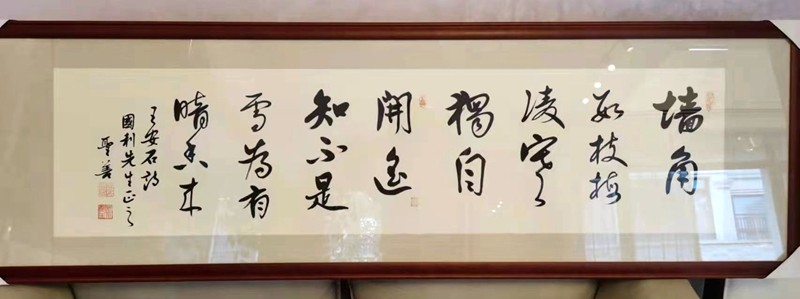 墙角
数枝梅
凌寒
獨自
開遥
知不是
雪為有
暗香来
王安石詩
國利先生正之
聖善